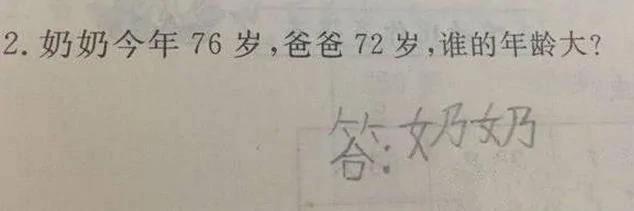 2. 奶奶今年 76 岁,爸爸 72 岁,谁的年龄大?
答:奶奶